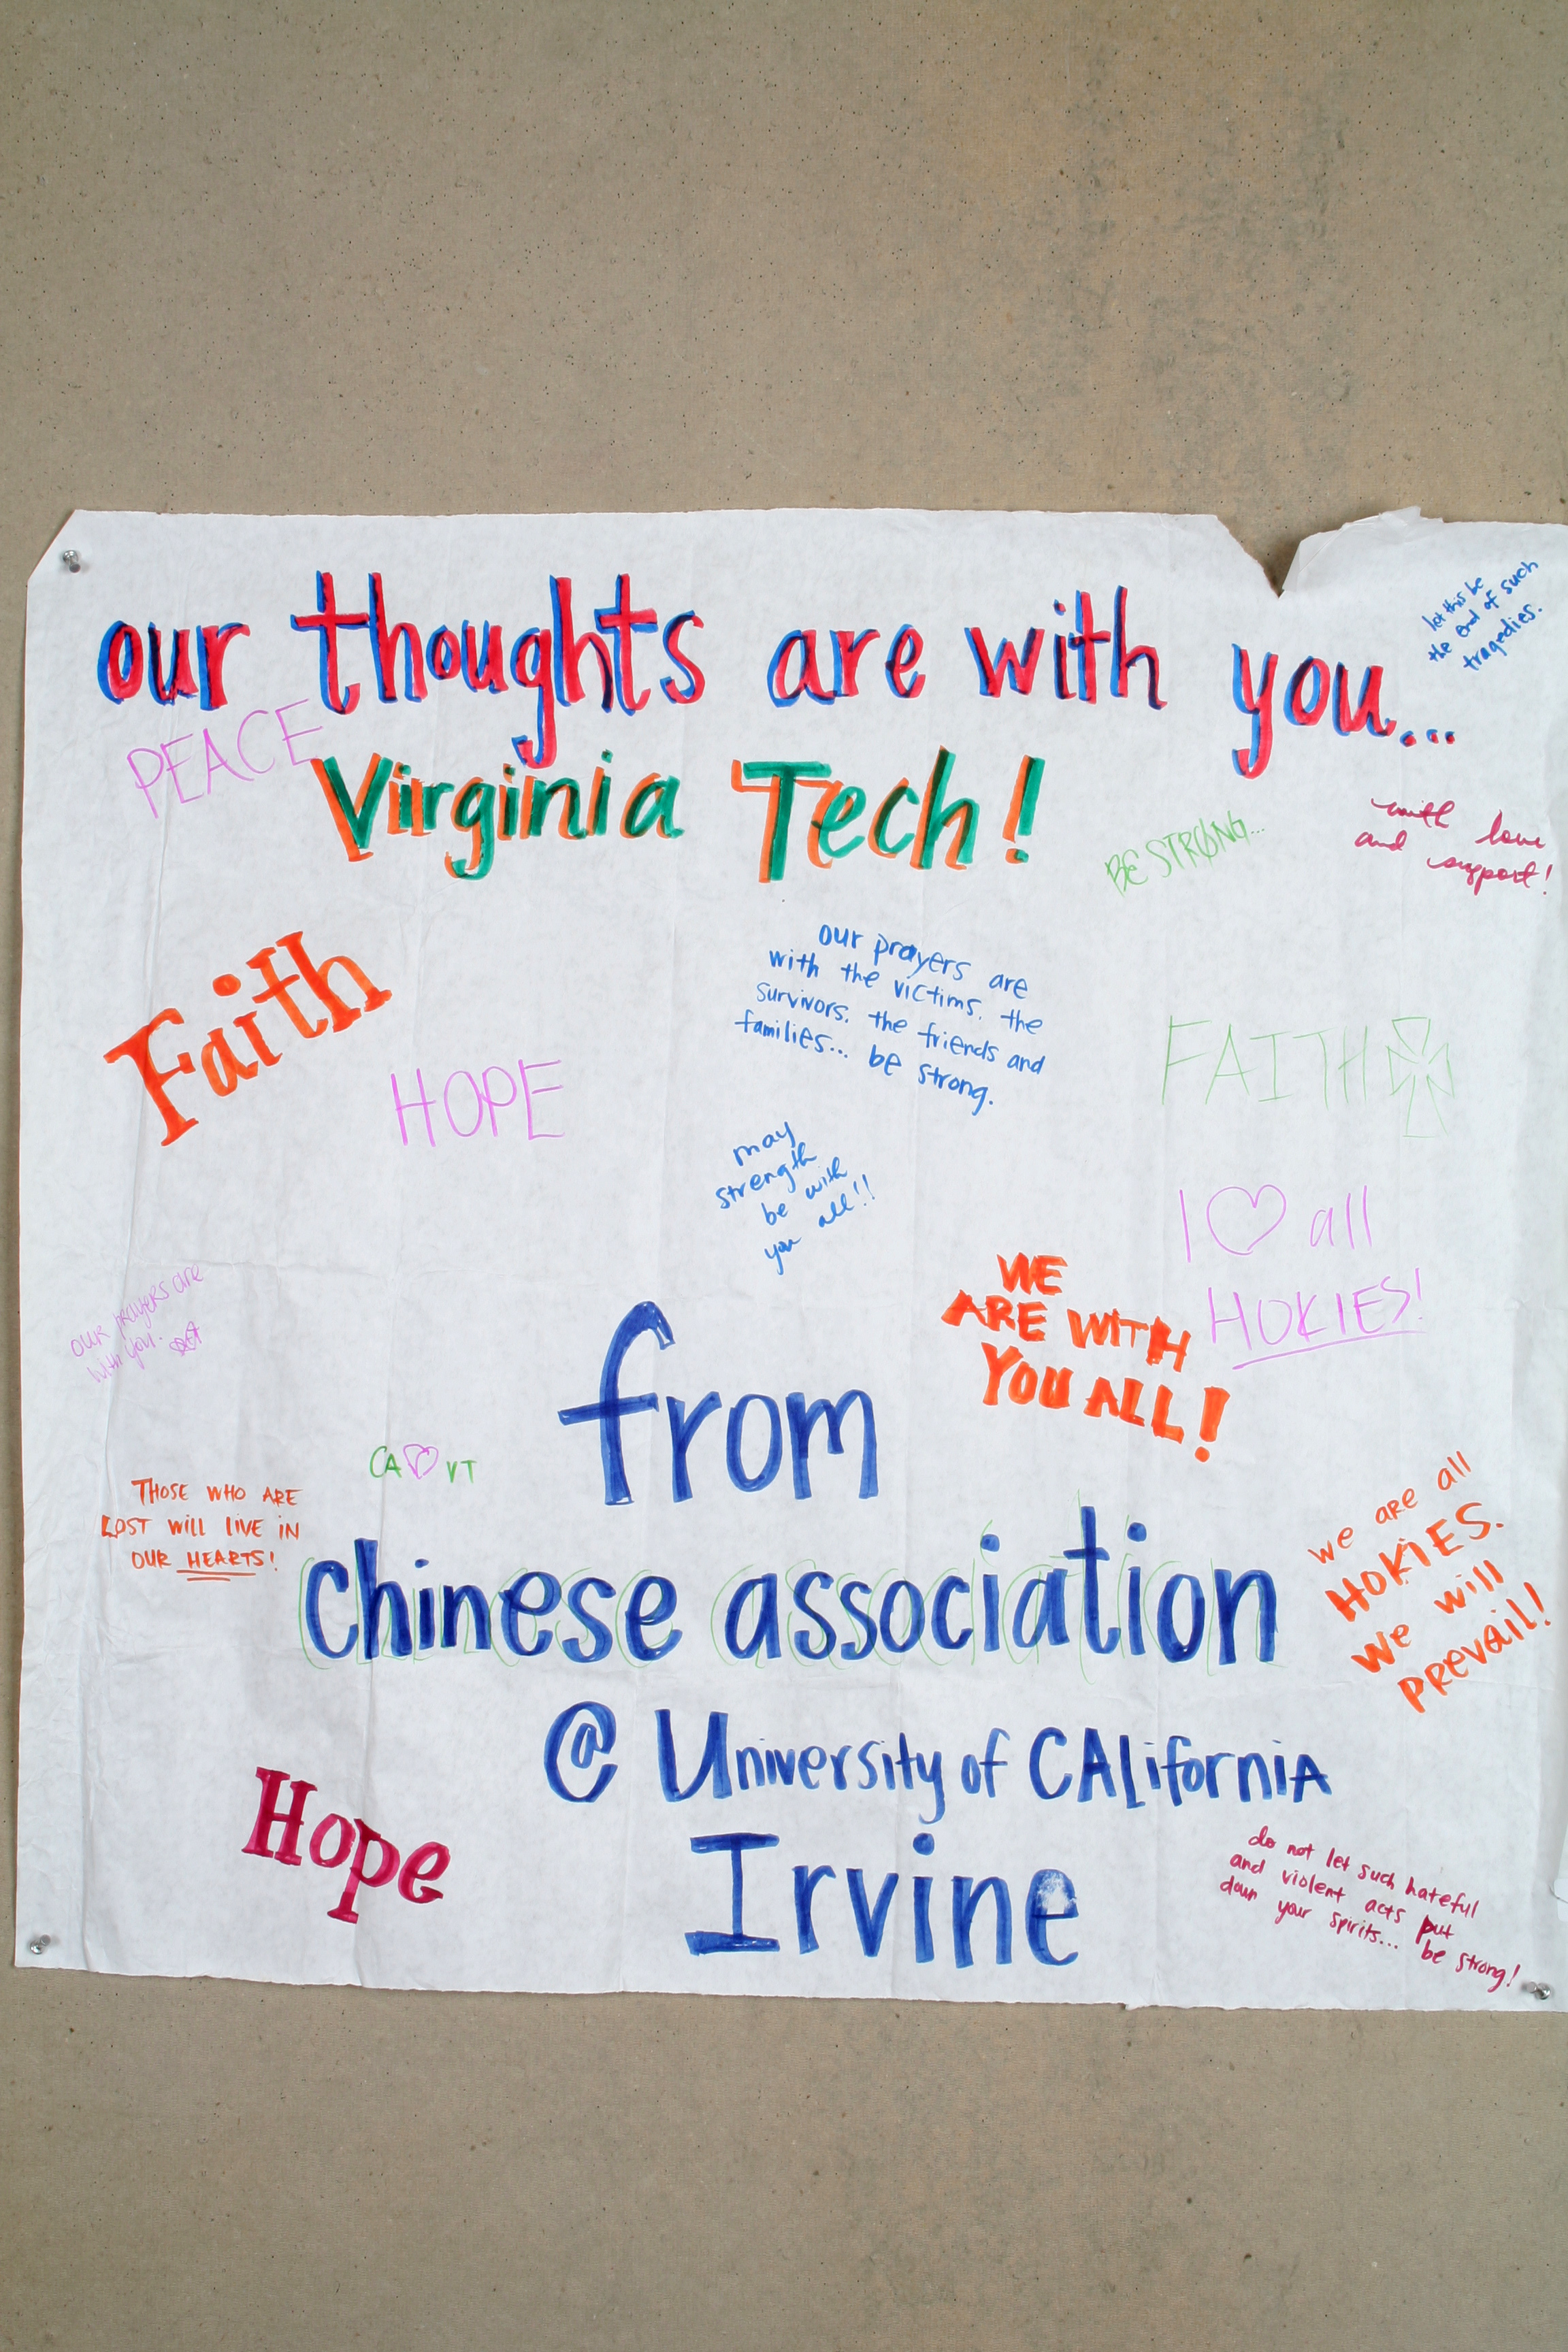 our thoughts are with you...
let this be
the end of such
tragedies.
PEACE
Virginia Tech!
BE STRONG...
with love
and support!
Faith
HOPE
our prayers are
with the victims, the
survivors, the friends and
families... be strong.
FAITH
may
strength
be with
you all!!
I ♡ all
HOKIES!
our prayers are
with you.
WE
ARE WITH
YOU ALL!
from
CA ♡ VT
THOSE WHO ARE
LOST WILL LIVE IN
OUR HEARTS!
we are all
HOKIES.
we will
prevail!
Chinese association
@ University of CALifornia
Irvine
Hope
do not let such hateful
and violent acts put
down your spirits... be strong!